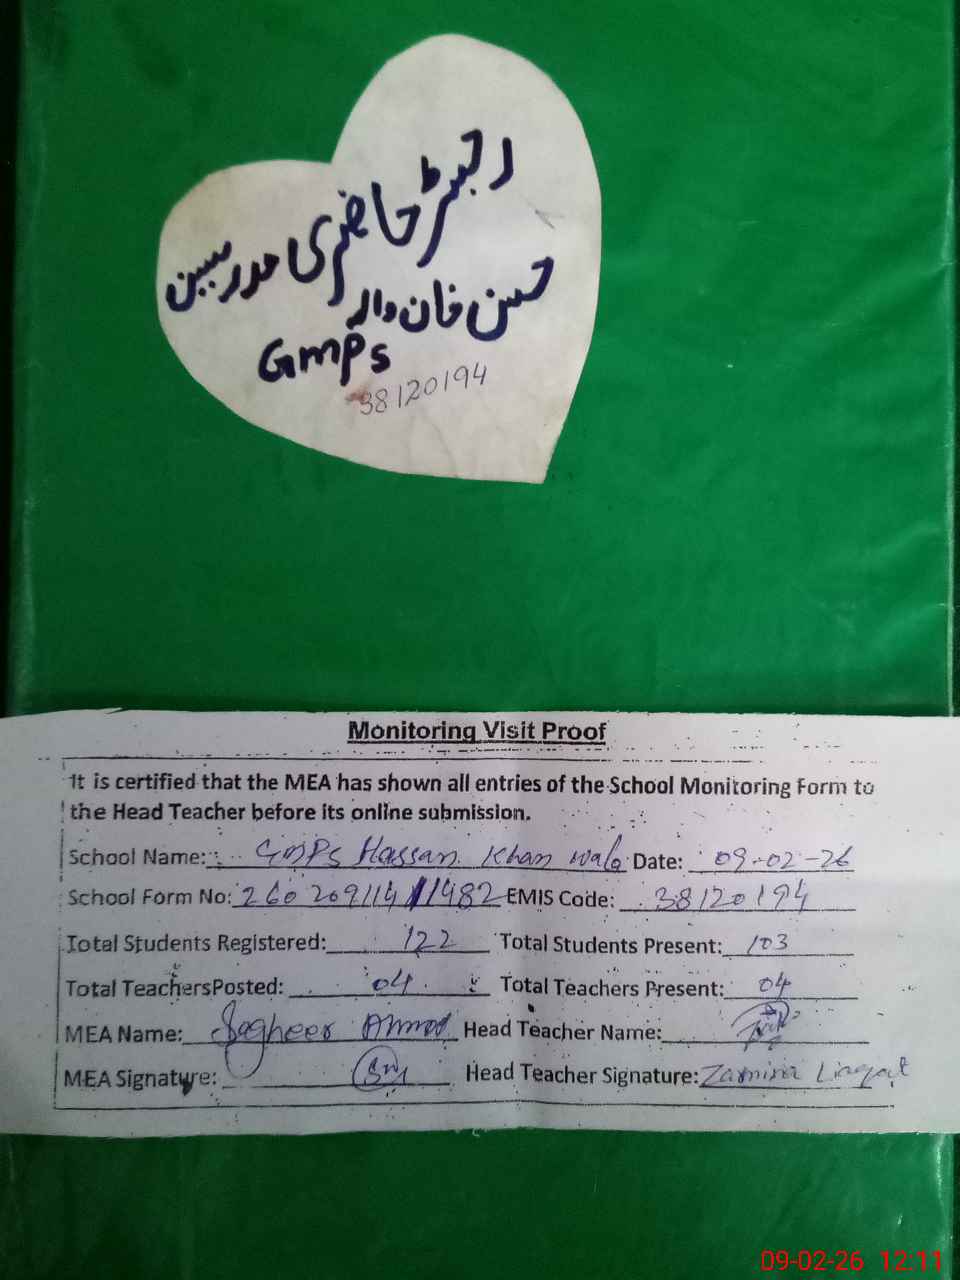 رجسٹر حاضری مدرسین
حسن خان والہ
GMPS
38120194
Monitoring Visit Proof
It is certified that the MEA has shown all entries of the School Monitoring Form to
the Head Teacher before its online submission.
School Name: GMPS Hassan Khan wala Date: 09-02-26
School Form No: 260209114 11482 EMIS Code: 38120194
Total Students Registered: 122 Total Students Present: 103
Total TeachersPosted: 04 Total Teachers Present: 04
MEA Name: Sagheer Ahmad Head Teacher Name:
MEA Signature: Head Teacher Signature: Zarmina Liaqat
09-02-26 12:11